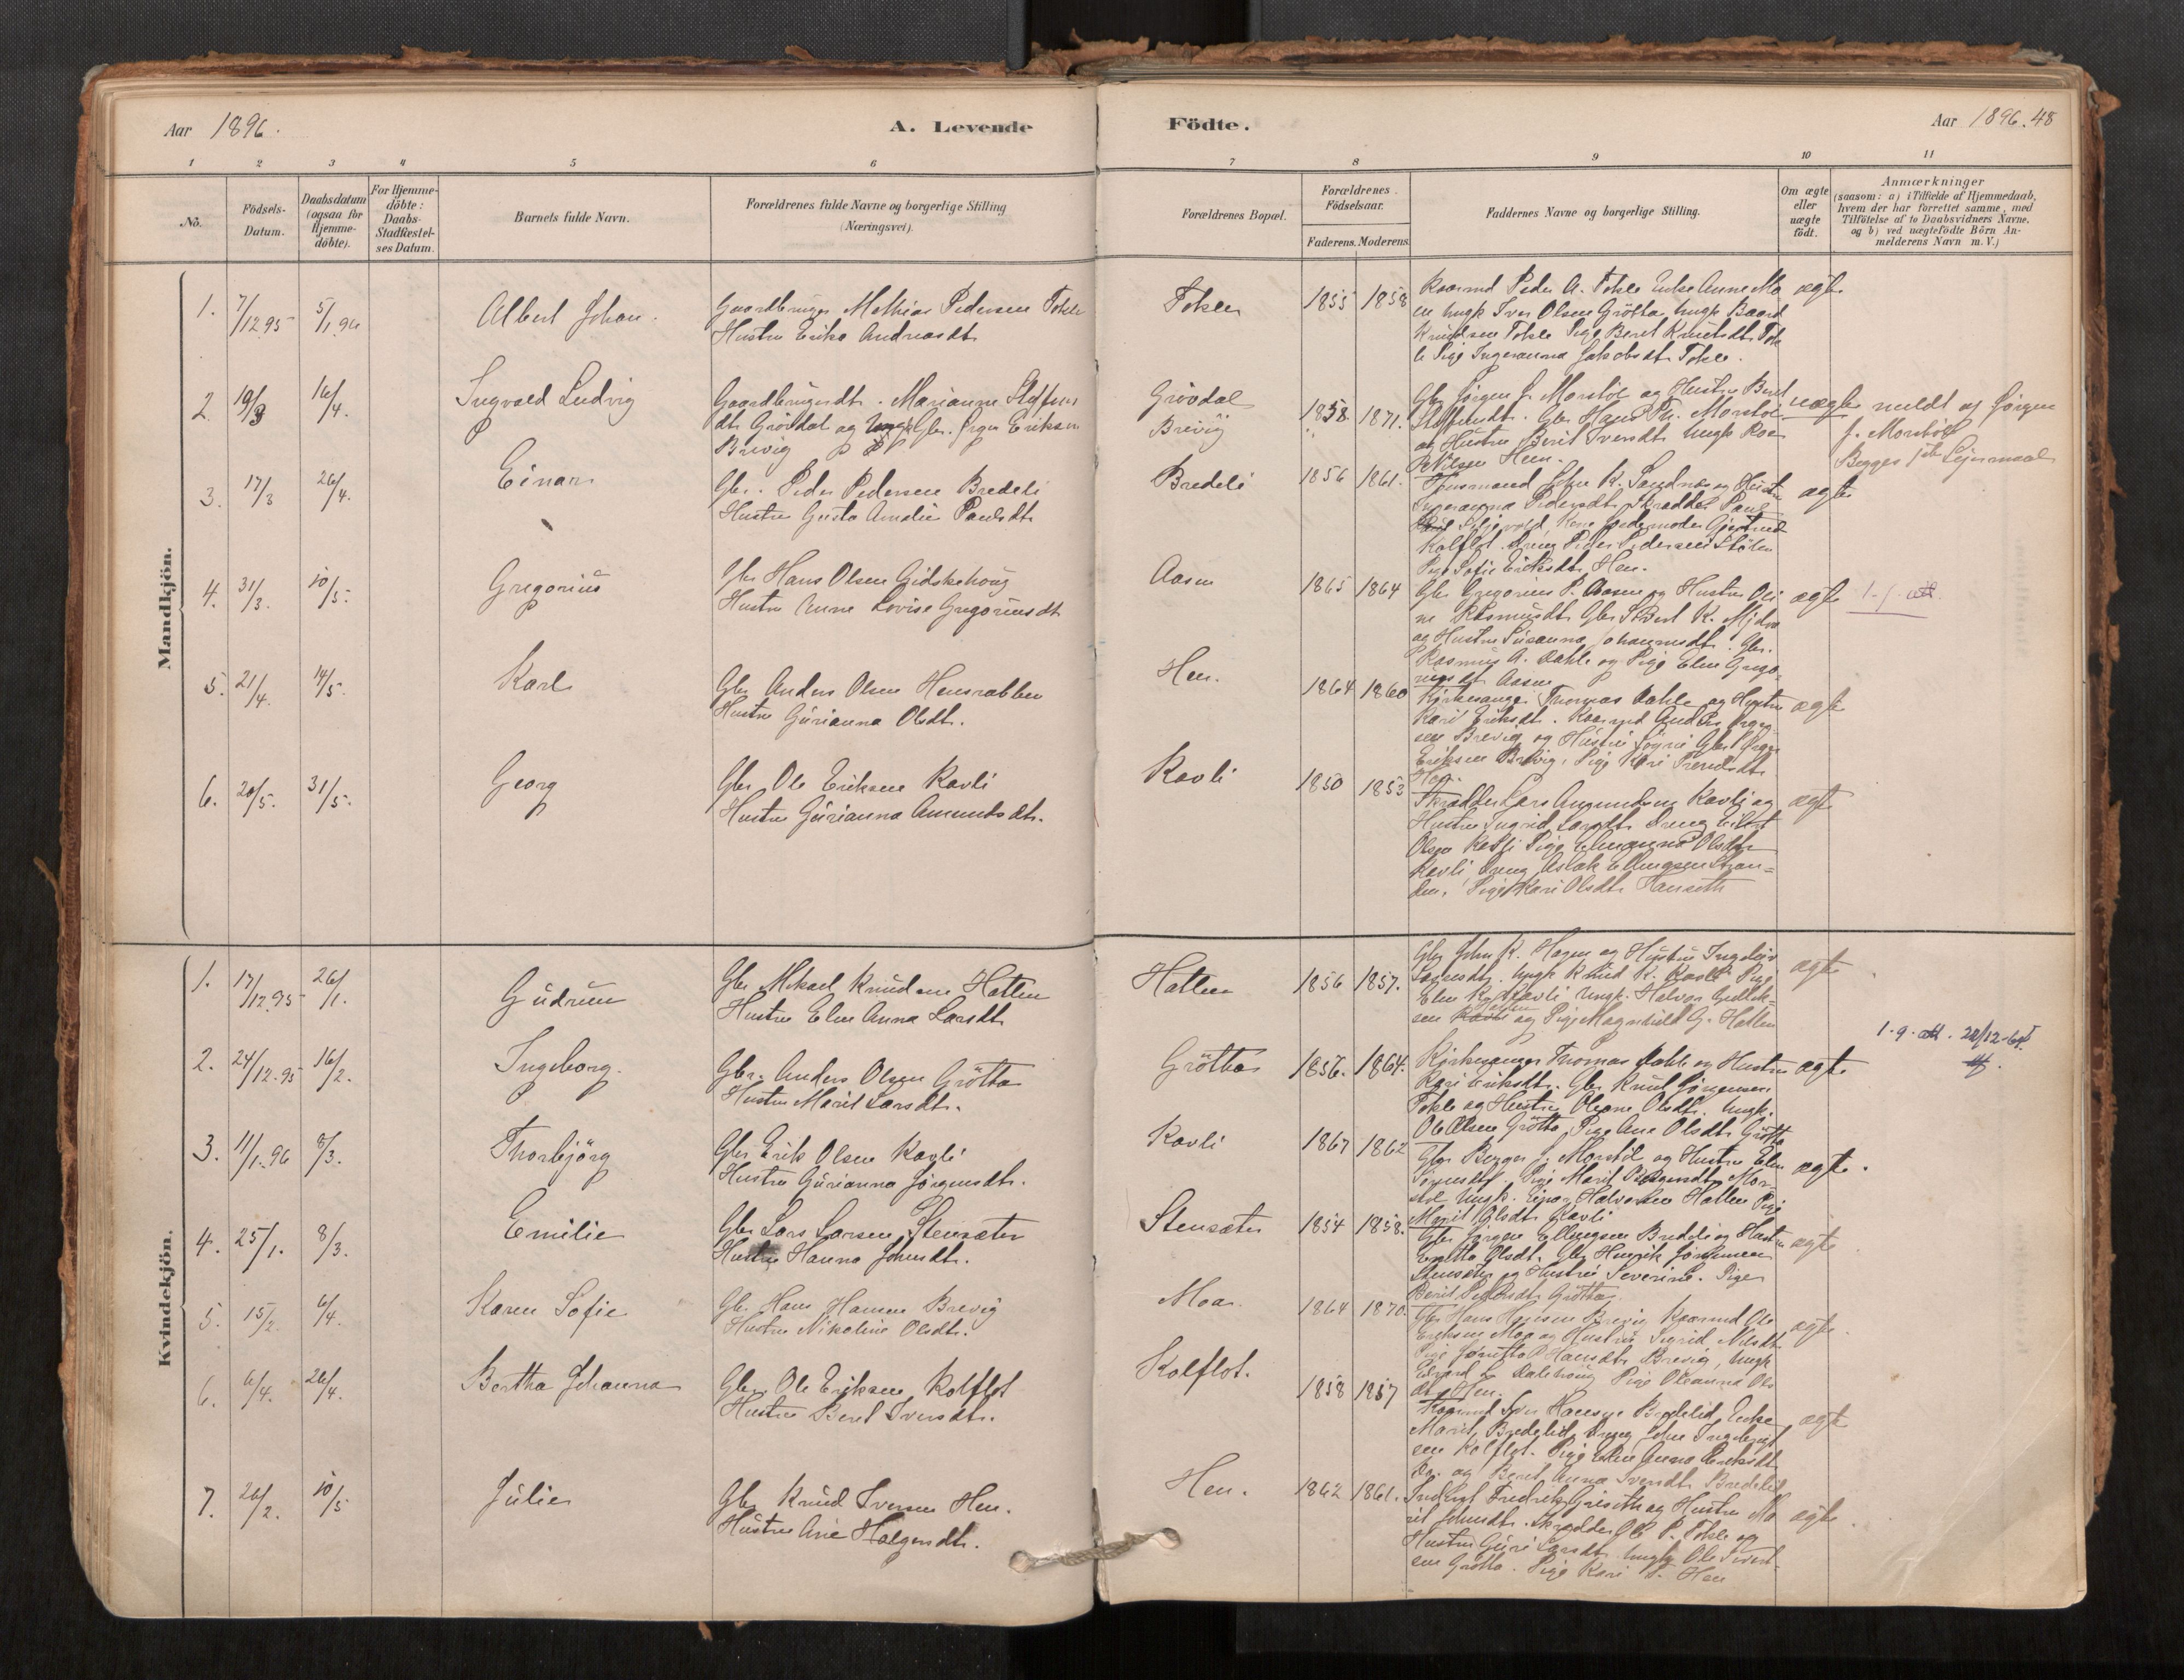 Aar 1896.
A. Levende
Födte.
Aar 1896. 48
1 2 3 4 5 6 7 8 9 10 11
No.
Födsels-Datum.
Daabsdatum (ogsaa for Hjemme-döbte).
For Hjemme-döbte: Daabs-Stadfæstel-ses Datum.
Barnets fulde Navn.
Forældrenes fulde Navne og borgerlige Stilling
(Næringsvei).
Forældrenes Bopæl.
Forældrenes Födselsaar.
Faderens. Moderens.
Faddernes Navne og borgerlige Stilling.
Om ægte eller uægte födt.
Anmærkninger
(saasom: a) i Tilfælde af Hjemmedaab,
hvem der har forrettet samme, med
Tilföielse af to Daabsvidners Navne.
og b) ved uægtefödte Börn An-
melderens Navn m. V.)
Mandkjön.
1. 7/12 95 5/1 96 Albert Johan. Gaardbruger Mathias Pedersen Tokle
Hustru Erika Andreasdt.
Tokle 1855 1858
Kaarmd Peder A. Tokle Enke Anne Mo
en Ungk Iver Olsen Grötta Ungk Baard
Knudsen Tokle Pige Beret Knutsdt. Tok
le Pige Ingeranna Jakobsdt. Tokle.
ægte
2. 19/3 16/4. Ingvald Ludvig Gaardbrugerdt. Marianne Steffens
dt. Grövdal og Gbr. Jörgen Eriksen
Brevig
Grövdal
Brevig
1858 1871.
Gbr Jörgen J. Morstöl og Hustru Beret
Steffensdt. Gbr Hans Morstöl
og Hustru Berit Iversdt. Ungk Roar
Nilsen Hen.
uægte meldt af Jörgen
J. Morstöl
Begges 1ste Lejermaal
3. 17/3 26/4. Einar Gbr. Peder Pedersen Bredeli
Hustru Gusta Amalie Paulsdt.
Bredeli 1856 1861.
Husmand John K. Sandnæs og Hustru
Ingeranna Pedersdt. Skrædder Paul
Kolflot. Dreng Peder Pedersen Stölen
Pige Sofie Eriksdt. Hen.
ægte
4. 31/3. 10/5. Gregorius Gbr Hans Olsen Gidskehoug
Hustru Anne Lovise Gregoriusdt
Aasen 1865 1864
Gbr Gregorius P. Aasen og Hustru Oli
ne Rasmusdt. Gbr Sivert K. Mjelva
og Hustru Susanna Johannesdt. Gbr.
Rasmus A. Dahle og Pige Elen Grego
riusdt Aasen
ægte 1.g. att.
5. 21/4. 14/5. Karl Gbr Anders Olsen Hensrabben
Hustru Gurianna Olsdt.
Hen. 1864 1860
Kirkesanger Thomas Dahle og Hustru
Kari Eriksdt. Kaarmd Anders Jörgen
sen Brevig og Hustru Synni Gbr Jörgen
Eriksen Brevig, Pige Kari Trondsdt.
Hen.
ægte
6. 20/5. 31/5. Georg Gbr Ole Eriksen Kavli
Hustru Gurianna Amundsdt.
Kavli 1850 1853
Skrædder Lars Amundsen Kavli og
Hustru Ingrid Larsdt. Dreng Eilert
Olsen Kavli Pige Elenanna Olsdt.
Kavli, Dreng Aslak Ellingsen Stran=
den. Pige Kari Olsdt. Hanseth
ægte
Kvindekjön.
1. 17/12 95 26/1. Gudrun Gbr Mikael Knudsen Hatlen
Hustru Elen Anna Larsdt
Hatlen 1856 1857.
Gbr John K. Hagen og Hustru Ingeleiv
Larsdt. Ungk Knud K. Kavli Pige
Elen K. Kavli Ungk. Halvor Gullik=
sen og Pige Magnhild G. Hatlen
ægte
2. 24/12-95 16/2. Ingeborg. Gbr. Anders Olsen Grötta
Hustru Marit Larsdt.
Grötta 1856. 1864.
Kirkesanger Thomas Dahle og Hustru
Kari Eriksdt. Gbr Knut Jörgensen
Tokle og Hustru Oleane Olsdt. Ungk.
Ole Olsen Grötta, Pige Ane Olsdt. Grötta
ægte 1.g. att. 22/12-64
3. 11/1.96 8/3. Thorbjörg Gbr Erik Olsen Kavli
Hustru Gurianna Jörgensdt.
Kavli 1867 1862
Gbr Birger J. Morstöl og Hustru Elen
Iversdt. Pige Marit Birgersdt. Mor
stöl Ungk. Einar Halvorsen Hatlen Pige
Marit Olsdt. Kavli
ægte.
4. 25/1. 8/3. Emilie Gbr Lars Larsen Stensæter
Hustru Hanna Johnsdt.
Stensæter 1854 1858.
Gbr Jörgen Ellingsen Bredeli og Hustru
Olsdt. Gbr Henrik Johnsen
Stensæter og Hustru Severine. Pige
Berit Pedersdt. Grötta.
ægte
5. 15/2. 6/4. Karen Sofie Gbr Hans Hansen Brevig
Hustru Nikoline Olsdt.
Moa. 1864 1870.
Gbr Hans Hansen Brevig Kaarmd Ole
Eriksen Moa og Hustru Sigrid Nilsdt
Pige Jonetta Hansdt. Brevig, Ungk
Edvard L. Dalehoug Pige Oleanna Ols
dt. Hen.
ægte
6. 6/4. 26/4. Bertha Johanna Gbr. Ole Eriksen Kolflot
Hustru Beret Iversdt.
Kolflot. 1858 1857
Kaarmd Iver Hansen Bredelid, Enke
Marit Bredelid, Dreng John Ingebrigt
sen Kolflot. Pige Elen Anna Eriksdt
Do. og Beret Anna Iversdt. Bredelid
ægte
7. 26/2. 10/5 Julie Gbr Knud Iversen Hen.
Hustru Ane Helgesdt.
Hen. 1862 1861.
Inderst Fredrik Griseth og Hustru Ma
rit Johnsdt. Skrædder Ole P. Tokle og
Hustru Guri Larsdt. Ungk Ole Sivert=
sen Grötta. Pige Kari I. Hen
ægte